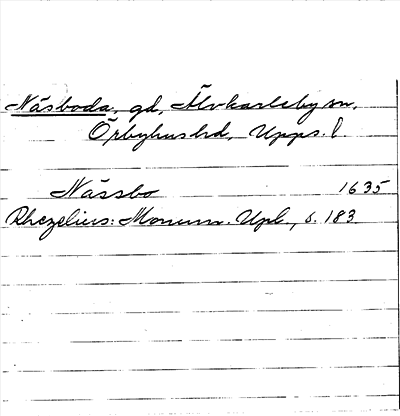 Näsboda, gd, Älvkarleby sn,
Örbyhus hd, Upps. l
Nässbo 1635
Rhezelius: Monum. Upl., s. 183